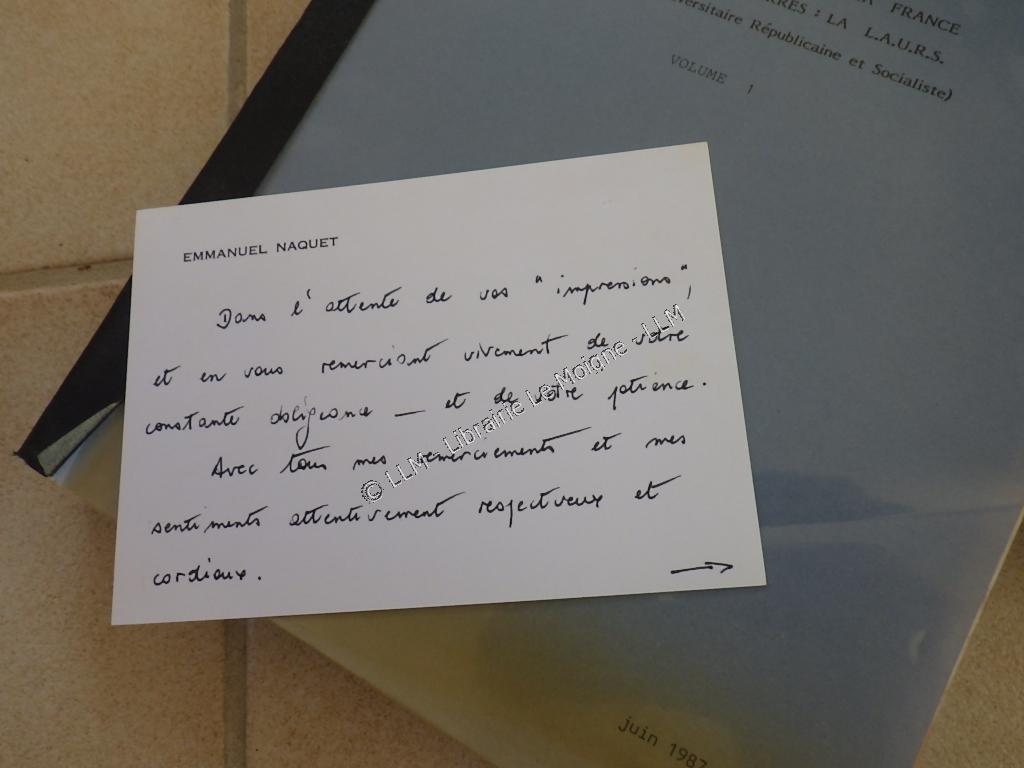 FRANCE
: LA L.A.U.R.S.
Républicaine et Socialiste)
VOLUME 1
EMMANUEL NAQUET
Dans l'attente de vos "impressions",
et en vous remerciant vivement de votre
constante obligeance — et de votre patience.
Avec tous mes remerciements et mes
sentiments attentivement respectueux et
cordiaux.
→
© LLM - Librairie Le Moigne - LLM
juin 1987